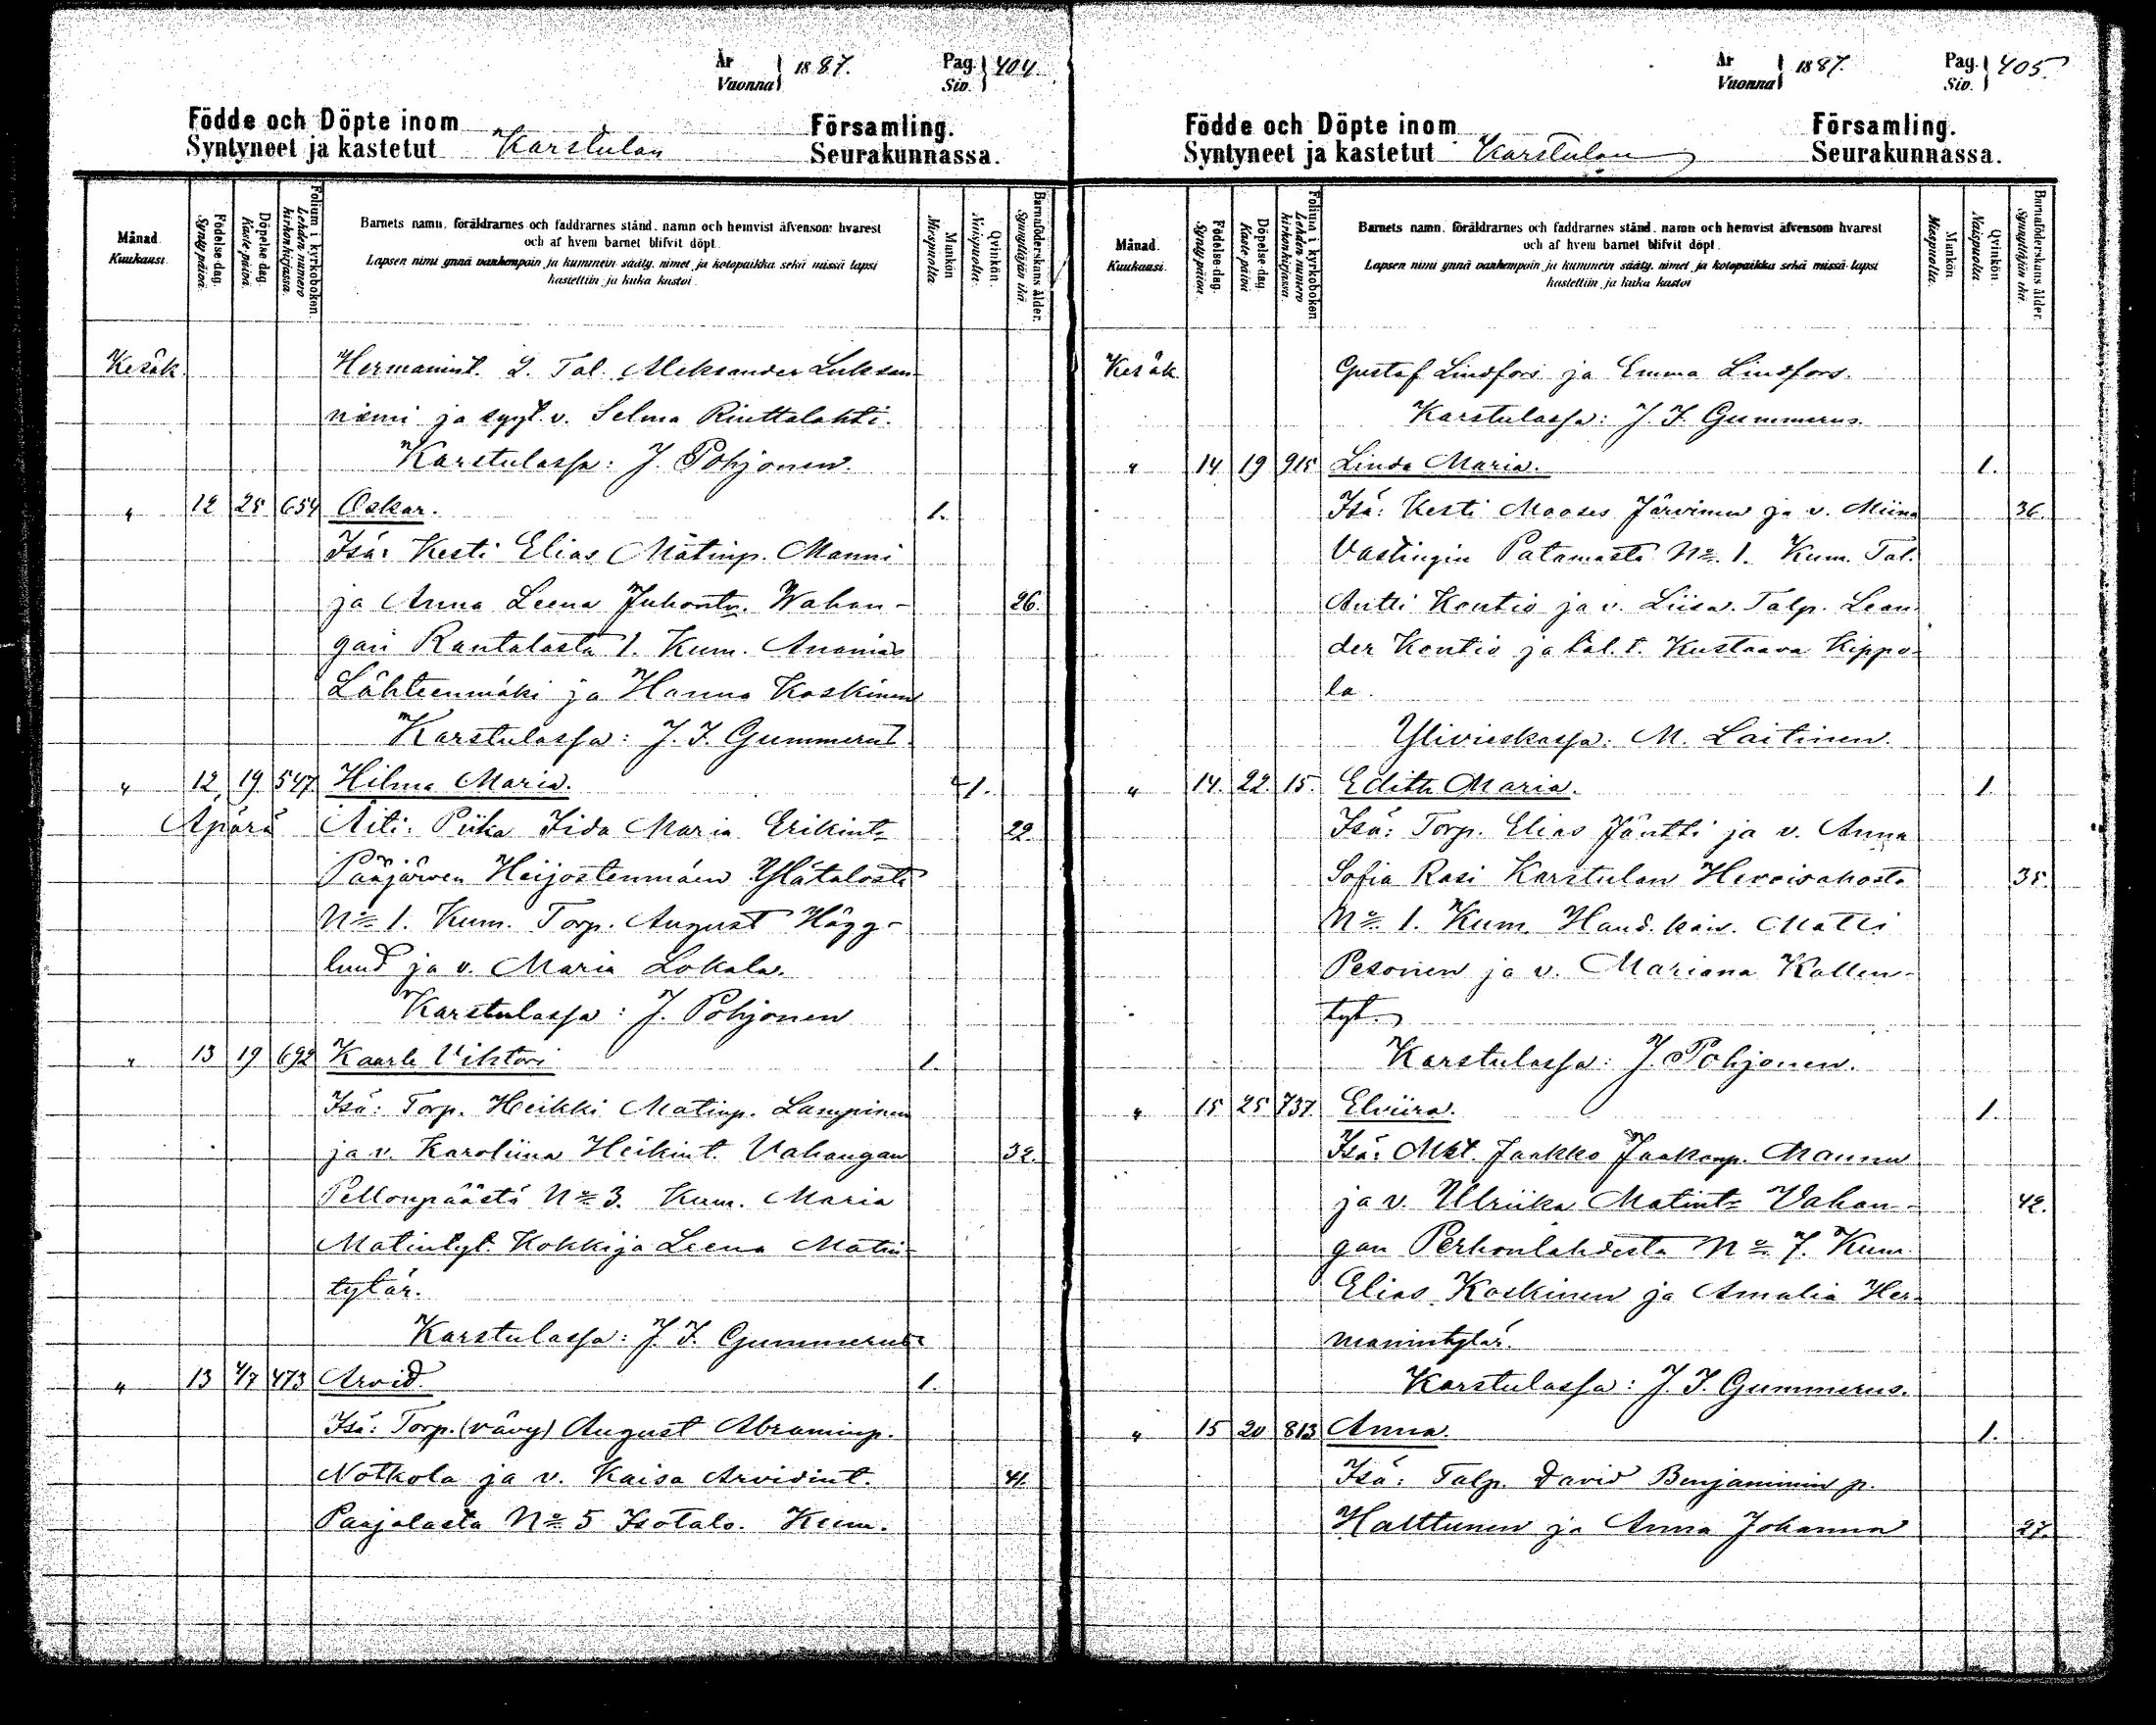 År
Vuonna 1887.
Pag.
Siv. 404.
Födde och Döpte inom Församling.
Syntyneet ja kastetut Karstulan Seurakunnassa.
Månad.
Kuukausi.
Födelse-dag.
Synty-päivä.
Döpelse-dag.
Kaste-päivä.
Folium i kyrkoboken.
Lehden numero kirkonkirjassa.
Barnets namn, föräldrarnes och faddrarnes stånd, namn och hemvist äfvensom hvarest
och af hvem barnet blifvit döpt.
Lapsen nimi ynnä vanhempain ja kummein sääty, nimet ja kotopaikka sekä missä lapsi
kastettiin ja kuka kastoi
Mankön
Miespuolta
Qvinkön.
Naispuolta.
Barnaföderskans ålder.
Synnyttäjän ikä.
Kesäk. Hermannint. 2. Tal. Aleksander Luksan-
niemi ja sygt. v. Selma Riuttalahti.
Karstulassa: J. Pohjonen.
" 12 25 654 Oskar. 1.
Isä: Kesti Elias Mätinp. Manni
ja Anna Leena Juhontr. Wahan- 26.
gan Rantalasta 1. Kum. Ananias
Lähteenmäki ja Hanna Koskinen
Karstulassa: J. I. Gummerus.
" 12 19 547 Hilma Maria. 1.
Äpärä Äiti: Piika Iida Maria Erikint. 22.
Pääjärven Heijostenmäen Ylätalosta
No 1. Kum. Torp. August Hägg-
lund ja v. Maria Lokala.
Karstulassa: J. Pohjonen
" 13 19 692 Kaarle Viktori 1.
Isä: Torp. Heikki Matinp. Lampinen
ja v. Karoliina Heikint. Vahangan 32.
Pellonpäästä No 3. Kum. Maria
Matintyt. Kokki ja Leena Matin-
tytär.
Karstulassa: J. I. Gummerus
" 13 4/7 473 Arvid. 1.
Isä: Torp. (vävy) August Abraminp.
Notkola ja v. Kaisa Arvidint. 41.
Paajalasta No 5 Isotalo. Kum.
År
Vuonna 1887.
Pag.
Siv. 405.
Födde och Döpte inom Församling.
Syntyneet ja kastetut Karstulan Seurakunnassa.
Månad.
Kuukausi.
Födelse-dag.
Synty-päivä.
Döpelse-dag.
Kaste-päivä
Folium i kyrkoboken
Lehden numero kirkonkirjassa.
Barnets namn, föräldrarnes och faddrarnes stånd, namn och hemvist äfvensom hvarest
och af hvem barnet blifvit döpt.
Lapsen nimi ynnä vanhempain ja kummein sääty, nimet ja kotopaikka sekä missä lapsi
kastettiin ja kuka kastoi
Mankön
Miespuolta.
Qvinkön.
Naispuolta
Barnaföderskans ålder.
Synnyttäjän ikä.
Kesäk. Gustaf Lindfors ja Emma Lindfors.
Karstulassa: J. I. Gummerus.
" 14 19 915 Linda Maria. 1.
Isä: Kesti Mooses Järvinen ja v. Miina 36.
Vastingin Patamasta No. 1. Kum. Tal.
Antti Kontio ja v. Liisa. Talp. Lean-
der Kontio ja tal. t. Kustaava Kippo-
la.
Ylivieskassa: M. Laitinen.
" 14. 22. 15. Edith Maria. 1.
Isä: Torp. Elias Jäntti ja v. Anna
Sofia Rasi Karstulan 35.
No. 1. Kum. Matti
Pesonen ja v. Mariana Kallen-
tyt.
Karstulassa: J. Pohjonen.
" 15 25 737 Elviira. 1.
Isä: Mkt. Jaakko Jaakonp. Mannu
ja v. Ulriika Matint. Vahan- 42.
gan Perhonlahdesta No 7. Kum.
Elias Koskinen ja Amalia Her-
mannintytär.
Karstulassa: J. I. Gummerus.
" 15 20 813 Anna. 1.
Isä: Talp. David Benjaminin p.
Halttunen ja Anna Johanna 27.